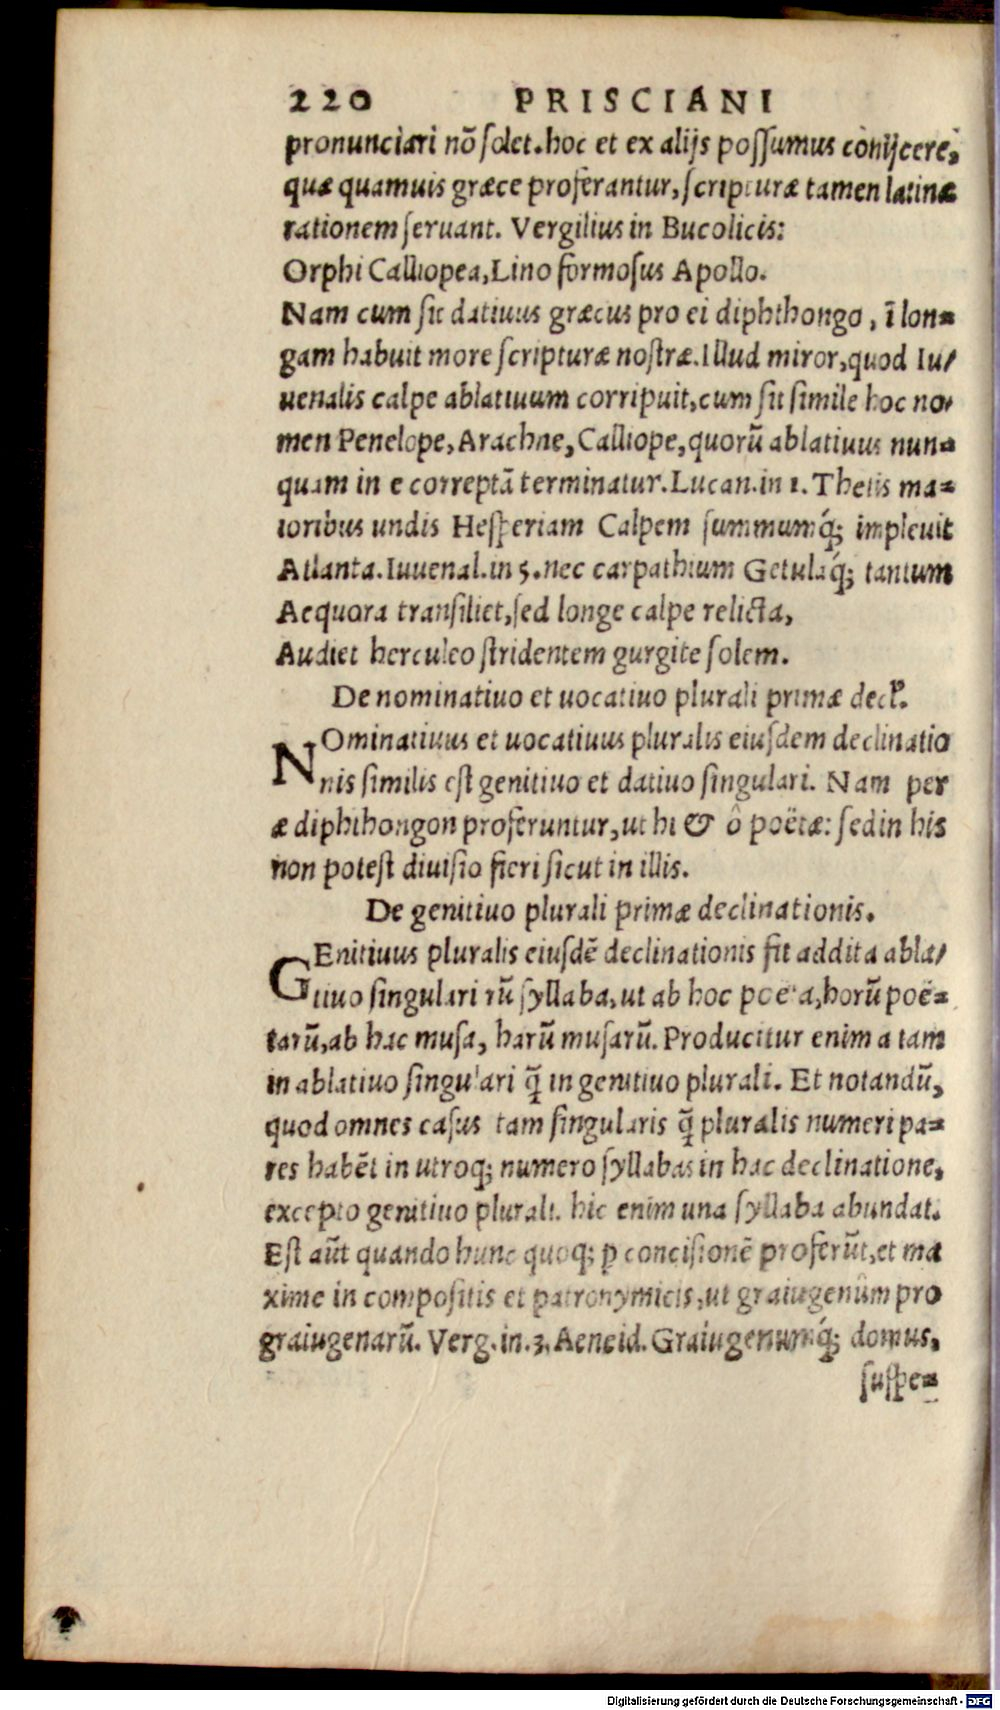 220 PRISCIANI
pronunciari nō ſolet. hoc et ex alijs poſſumus cònijcere,
quæ quamuis græce proferantur, ſcripturæ tamen latinæ
rationem ſeruant. Vergilius in Bucolicis:
Orphi Calliopea, Lino formoſus Apollo.
Nam cum ſit datiuus græcus pro ei diphthongo, ī lon-
gam habuit more ſcripturæ noſtræ. Illud miror, quod Iu/
uenalis calpe ablatiuum corripuit, cum ſit ſimile hoc no/
men Penelope, Arachne, Calliope, quorū ablatiuus nun-
quam in e correptā terminatur. Lucan. in 1. Thetis ma-
ioribus undis Heſperiam Calpem ſummumq́; impleuit
Atlanta. Iuuenal. in 5. nec carpathium Getulaq́; tantum
Aequora tranſiliet, ſed longe calpe relicta,
Audiet herculeo ſtridentem gurgite ſolem.
De nominatiuo et uocatiuo plurali primæ decł.
NOminatiuus et uocatiuus pluralis eiuſdem declinatio
nis ſimilis eſt genitiuo et datiuo ſingulari. Nam per
æ diphthongon proferuntur, ut hi & ô poëtæ: ſed in his
non poteſt diuiſio fieri ſicut in illis.
De genitiuo plurali primæ declinationis.
GEnitiuus pluralis eiuſdē declinationis fit addita abla/
tiuo ſingulari rū ſyllaba, ut ab hoc poëta, horū poë-
tarū, ab hac muſa, harū muſarū. Producitur enim a tam
in ablatiuo ſingulari q̄ in genitiuo plurali. Et notandū,
quod omnes caſus tam ſingularis q̄ pluralis numeri pa-
res habēt in utroq; numero ſyllabas in hac declinatione,
excepto genitiuo plurali. hic enim una ſyllaba abundat.
Eſt aūt quando hunc quoq; ꝑ conciſionē proferūt, et ma
xime in compoſitis et patronymicis, ut graiugenûm pro
graiugenarū. Verg. in. 3. Aeneid. Graiugenumq́; domus,
ſuſpe-
Digitalisierung gefördert durch die Deutsche Forschungsgemeinschaft - DFG